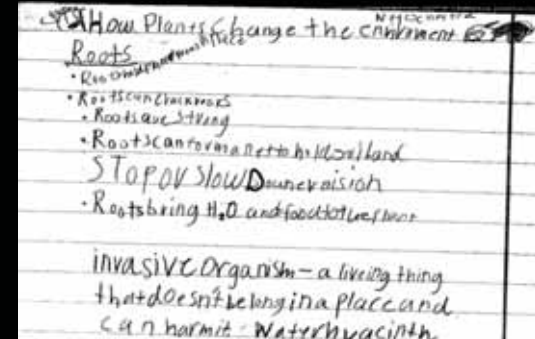 How Plants Change the
Roots
place
• Roots can
• Roots are strong
• Roots can form a net to hold soil/land
STOP or Slow Down
• Roots bring H₂O and food to the plant
invasive organism - a liveing thing
that doesn't belong in a place and
can harm it - Water hyacinth